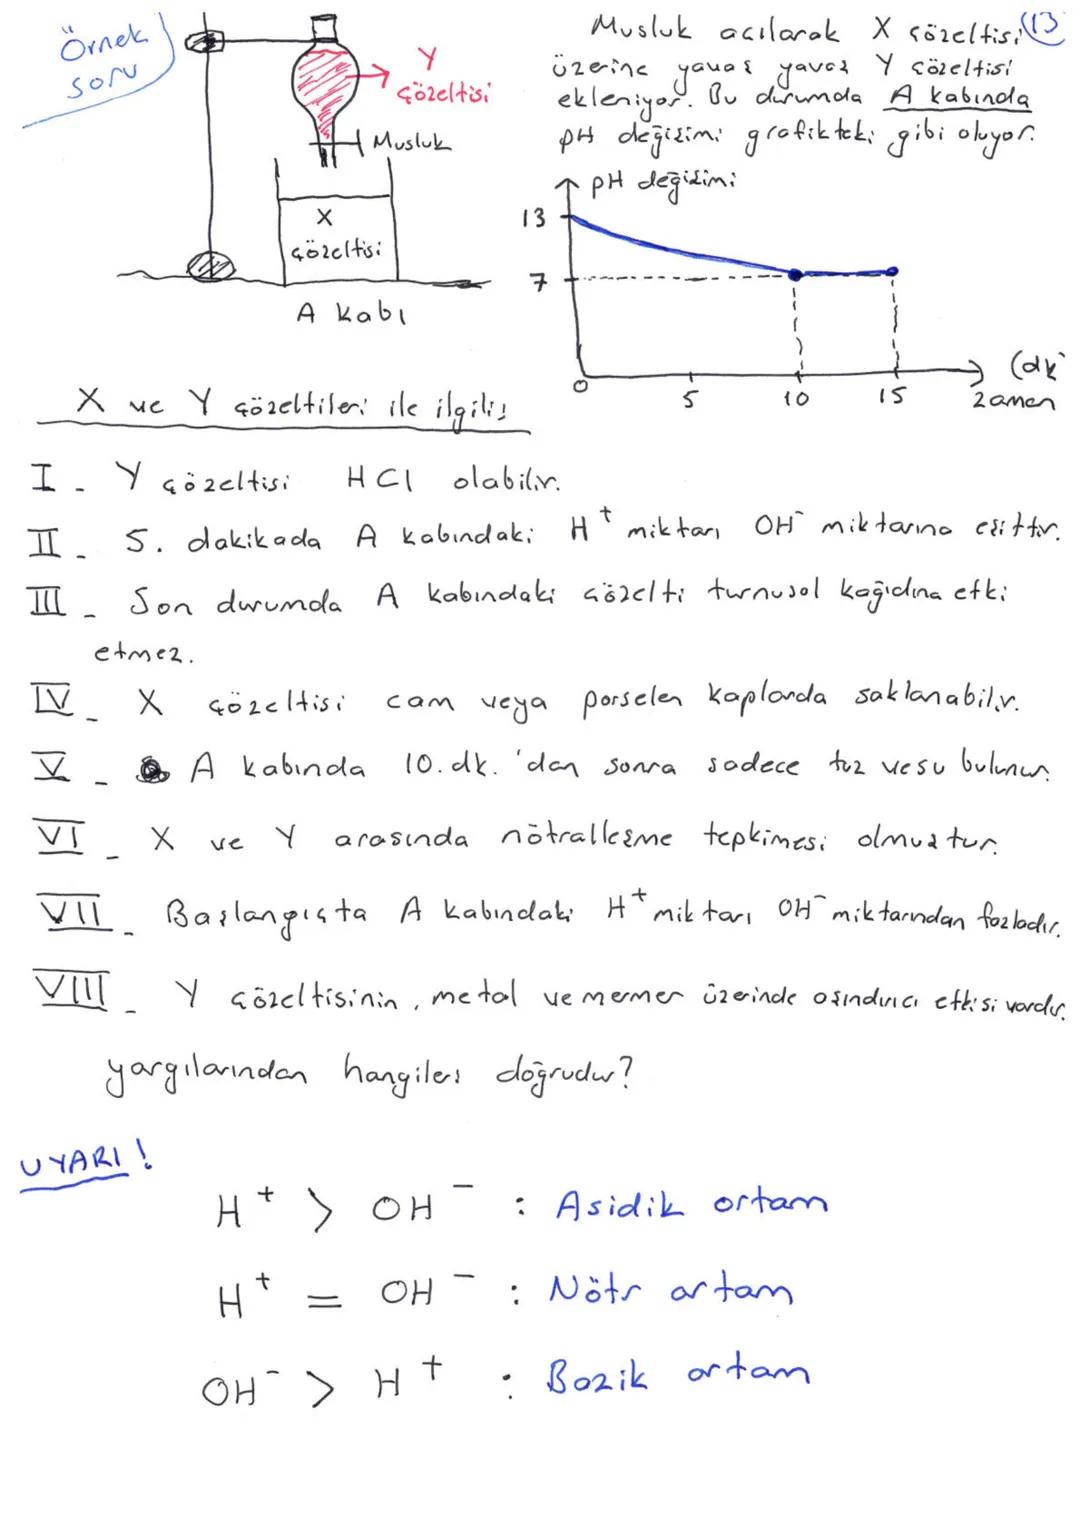 Örnek
soru
Y
çözeltisi
Musluk
X
çözeltisi
A kabı
13
Musluk açılarak X çözeltisi
üzerine yavaş yavaş Y çözeltisi
ekleniyor. Bu durumda A kabında
pH değişimi grafikteki gibi oluyor.
pH değişimi
13
7
0
5
10
15
(dk)
zaman
X ve Y çözeltileri ile ilgili;
I - Y çözeltisi HCl olabilir.
II - 5. dakikada A kabındaki H+ miktarı OH- miktarına eşittir.
III - Son durumda A kabındaki çözelti turnusol kağıdına etki
etmez.
IV - X çözeltisi cam veya porselen kaplarda saklanabilir.
V - A kabında 10. dk.'dan sonra sadece tuz ve su bulunur.
VI - X ve Y arasında nötralleşme tepkimesi olmuştur.
VII - Başlangıçta A kabındaki H+ miktarı OH- miktarından fazladır.
VIII - Y çözeltisinin, metal ve mermer üzerinde aşındırıcı etkisi vardır.
yargılarından hangileri doğrudur?
UYARI!
H+ > OH- : Asidik ortam
H+ = OH- : Nötr ortam
OH- > H+ : Bazik ortam